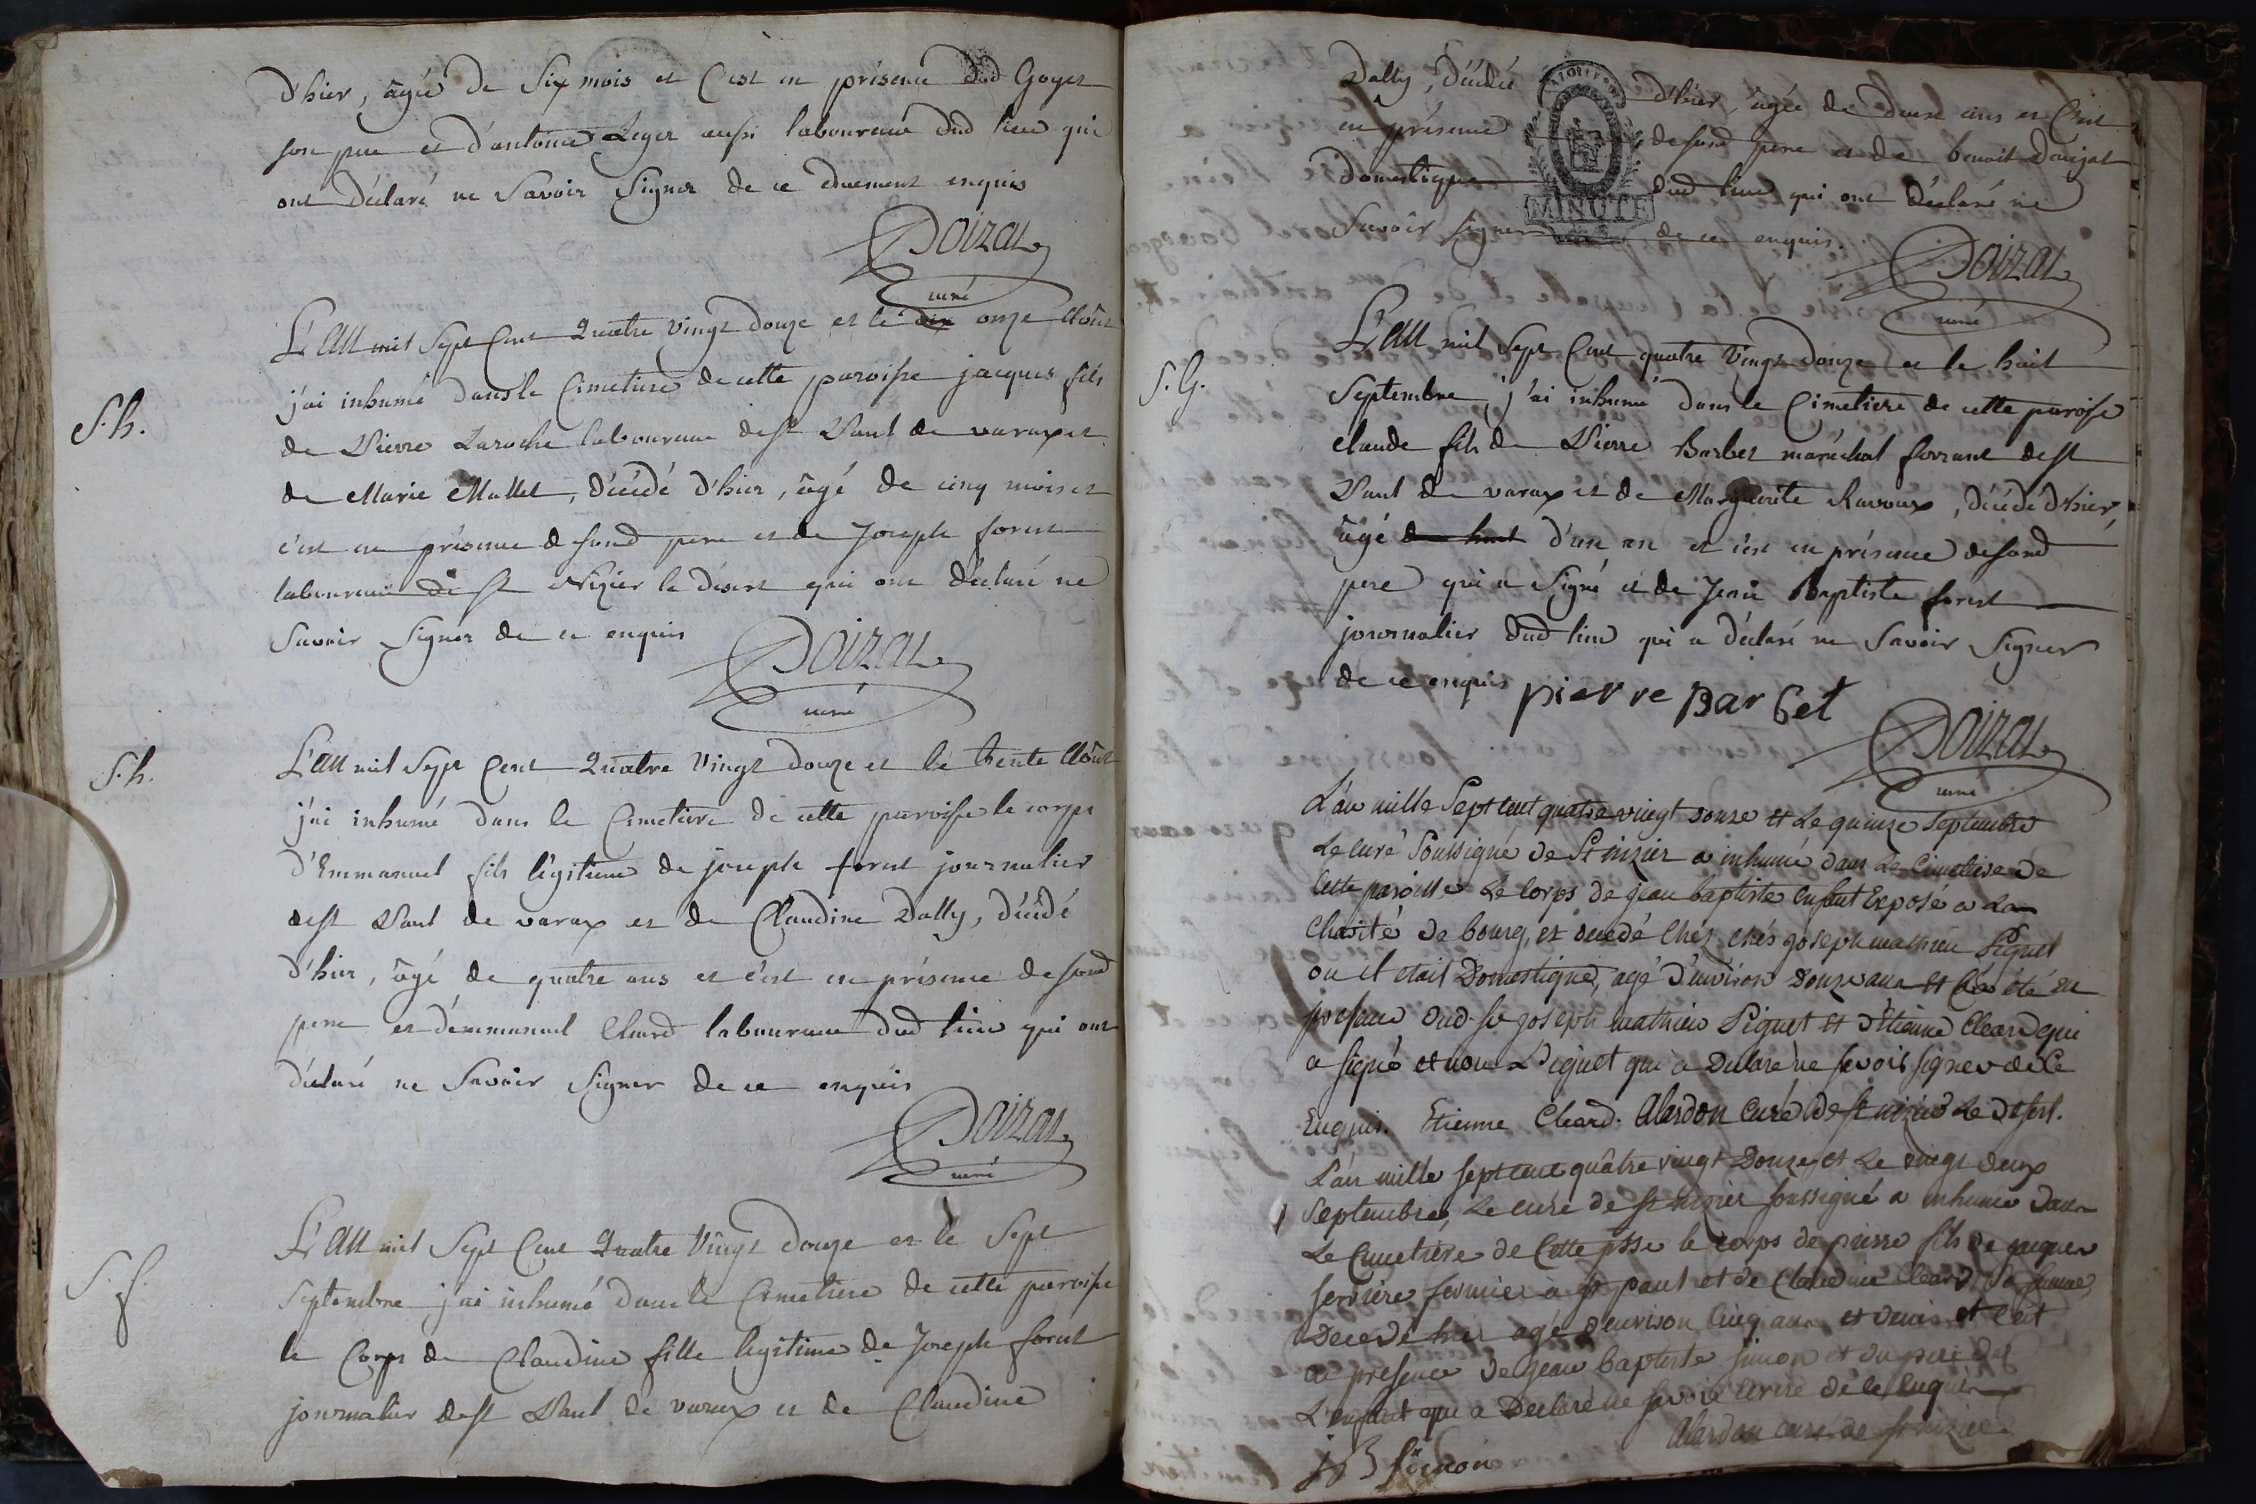 d'hier, âgée de Six mois et C'est en présence dud Goyet
son pere et d'antoine Leger aussi laboureur dud lieu qui
ont déclaré ne Savoir Signer de ce duement enquis
Doizat
curé
L'an mil Sept Cent Quatre Vingt douze et le dix onze Août
S. h.
j'ai inhumé dans le Cimetiere de cette paroisse jacques fils
de Pierre Laroche laboureur de St Paul de varax et
de Marie Mallet, décédé d'hier, âgé de cinq mois et
c'est en présence de sond pere et de Joseph forest
laboureur de St Nizier le désert qui ont déclaré ne
Savoir Signer de ce enquis
Doizat
curé
S. h.
L'an mil Sept Cent Quatre Vingt douze et le trente Août
j'ai inhumé dans le Cimetiere de cette paroisse le corps
d'Emmanuel fils légitime de joseph forest journalier
de St Paul de varax et de Claudine Dally, décédé
d'hier, âgé de quatre ans et c'est en présence de sond
pere et d'emmanuel Cleard laboureur dud lieu qui ont
déclaré ne Savoir Signer de ce enquis
Doizat
curé
S. f.
L'an mil Sept Cent Quatre Vingt douze et le Sept
Septembre j'ai inhumé dans le Cimetiere de cette paroisse
le Corps de Claudine fille légitime de Joseph forest
journalier de St Paul de varax et de Claudine
Dally, décédée d'hier, âgée de deux ans et C'est
en présence de sond pere et de benoit
Domestique dud lieu qui ont déclaré ne
Savoir signer de ce enquis.
MINUTE
Doizat
curé
S. G.
L'an mil Sept Cent quatre Vingt douze et le huit
Septembre, j'ai inhumé dans le Cimetiere de cette paroisse
claude fils de Pierre Barbet maréchal ferrant de St
Paul de varax et de Marguerite Ravoux, décédé d'hier,
âgé de huit d'un an et c'est en présence de sond
pere qui a Signé et de Jean Baptiste forest
journalier dud lieu qui a déclaré ne Savoir Signer
de ce enquis pierre Barbet
Doizat
curé
L'an mille Sept cent quatre vingt douze et Le quinze Septembre
Le curé Soussigné de St nizier a inhumé dans Le Cimetiere de
Cette paroisse Le Corps de jean baptiste enfant Exposé a La
Charité de bourg, et décédé Chés chés joseph mathieu Piquet
ou il etait Domestique, agé d'environ douze ans et Ca été en
presence dud. Sr joseph mathieu Piquet et d'Etienne Cleard qui
a signé et non Le Piquet qui a Declaré ne Savoir signer de Ce
Enquis. Etienne Cleard. Alardon Curé de St nizier Le Désert.
L'an mille sept cent quâtre vingt Douze, et Le vingt deux
Septembre, Le curé de St nizier soussigné a inhumé dans
Le Cimetiere de Cette psse le corps de pierre fils de jacques
ferriere fermier a St paul et de Claudine Cleard Sa femme,
Decedé hier agé d'environ Cinq ans et demi et C'est
en presence de jean baptiste simon et du pere de
L'enfant qui a Declaré ne savoir Ecrire de Ce Enquis
Alardon curé de St nizier
j B simon